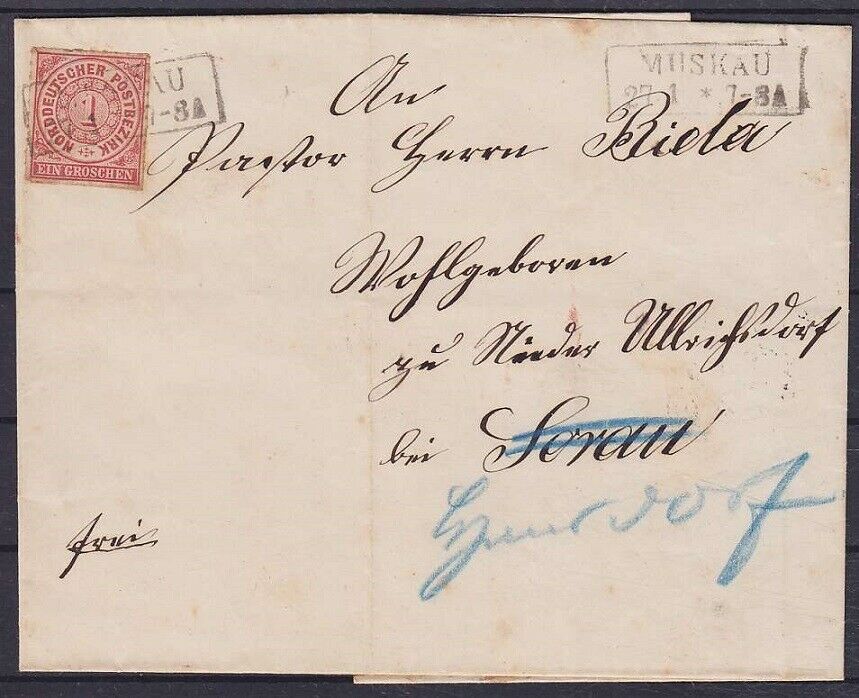 NORDDEUTSCHER POSTBEZIRK
1
EIN GROSCHEN
AU
7-8A
MUSKAU
27 1 * 7-8A
An
Pastor Herrn Biela
Wohlgeboren
zu Nieder Ullrichsdorf
bei Sorau
frei